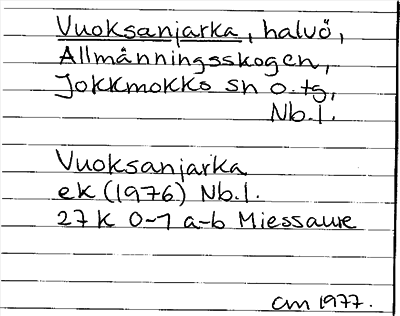 Vuoksanjarka, halvö,
Allmänningsskogen,
Jokkmokks sn o. tg,
Nb.l.
Vuoksanjarka
ek (1976) Nb.l.
27 K 0-1 a-b Miessaure
am 1977.